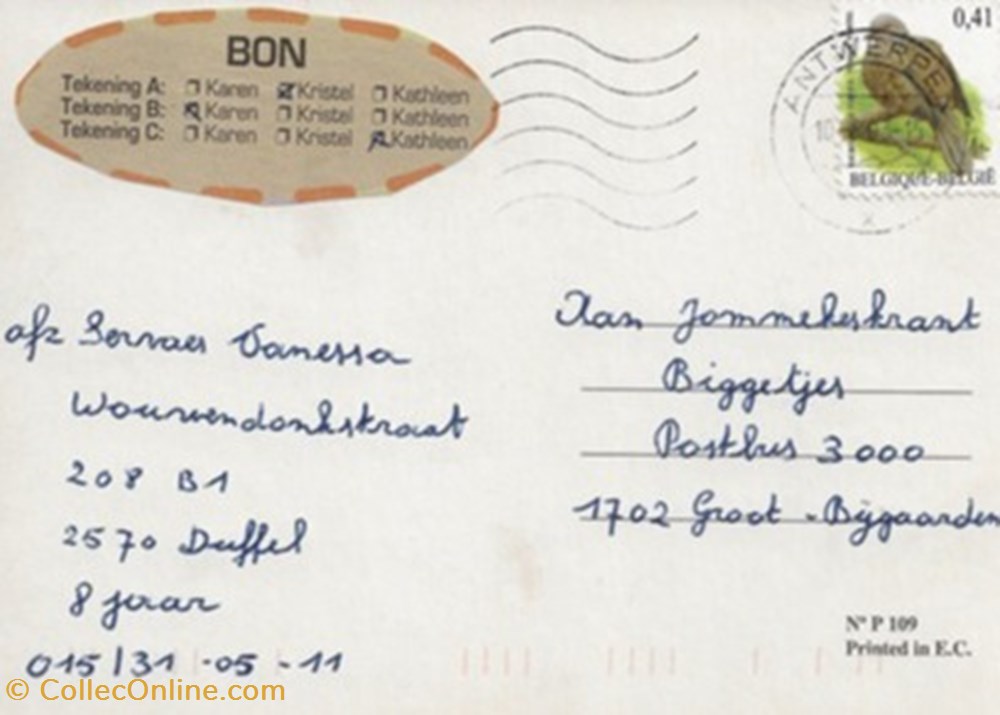 BON
Tekening A: Karen Kristel Kathleen
Tekening B: Karen Kristel Kathleen
Tekening C: Karen Kristel Kathleen
0,41
ANTWERPEN
10
BELGIQUE-BELGIË
X
afz Servaes Vanessa
Wouwendonkstraat
208 B1
2570 Duffel
8 jaar
015/31-05-11
Aan Jommekeskrant
Biggetjes
Postbus 3000
1702 Groot-Bijgaarden
Nº P 109
Printed in E.C.
© CollecOnline.com